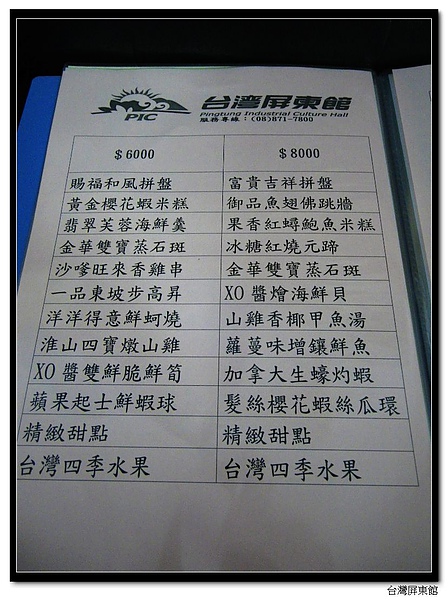 PIC
台灣屏東館
Pingtung Industrial Culture Hall
服務專線：(08)871-7800
$6000 $8000
賜福和風拼盤 富貴吉祥拼盤
黃金櫻花蝦米糕 御品魚翅佛跳牆
翡翠芙蓉海鮮羹 果香紅蟳鮑魚米糕
金華雙寶蒸石斑 冰糖紅燒元蹄
沙嗲旺來香雞串 金華雙寶蒸石斑
一品東坡步高昇 XO醬燴海鮮貝
洋洋得意鮮蚵燒 山雞香椰甲魚湯
淮山四寶燉山雞 蘿蔓味增鑲鮮魚
XO醬雙鮮脆鮮筍 加拿大生蠔灼蝦
蘋果起士鮮蝦球 髮絲櫻花蝦絲瓜環
精緻甜點 精緻甜點
台灣四季水果 台灣四季水果
台灣屏東館